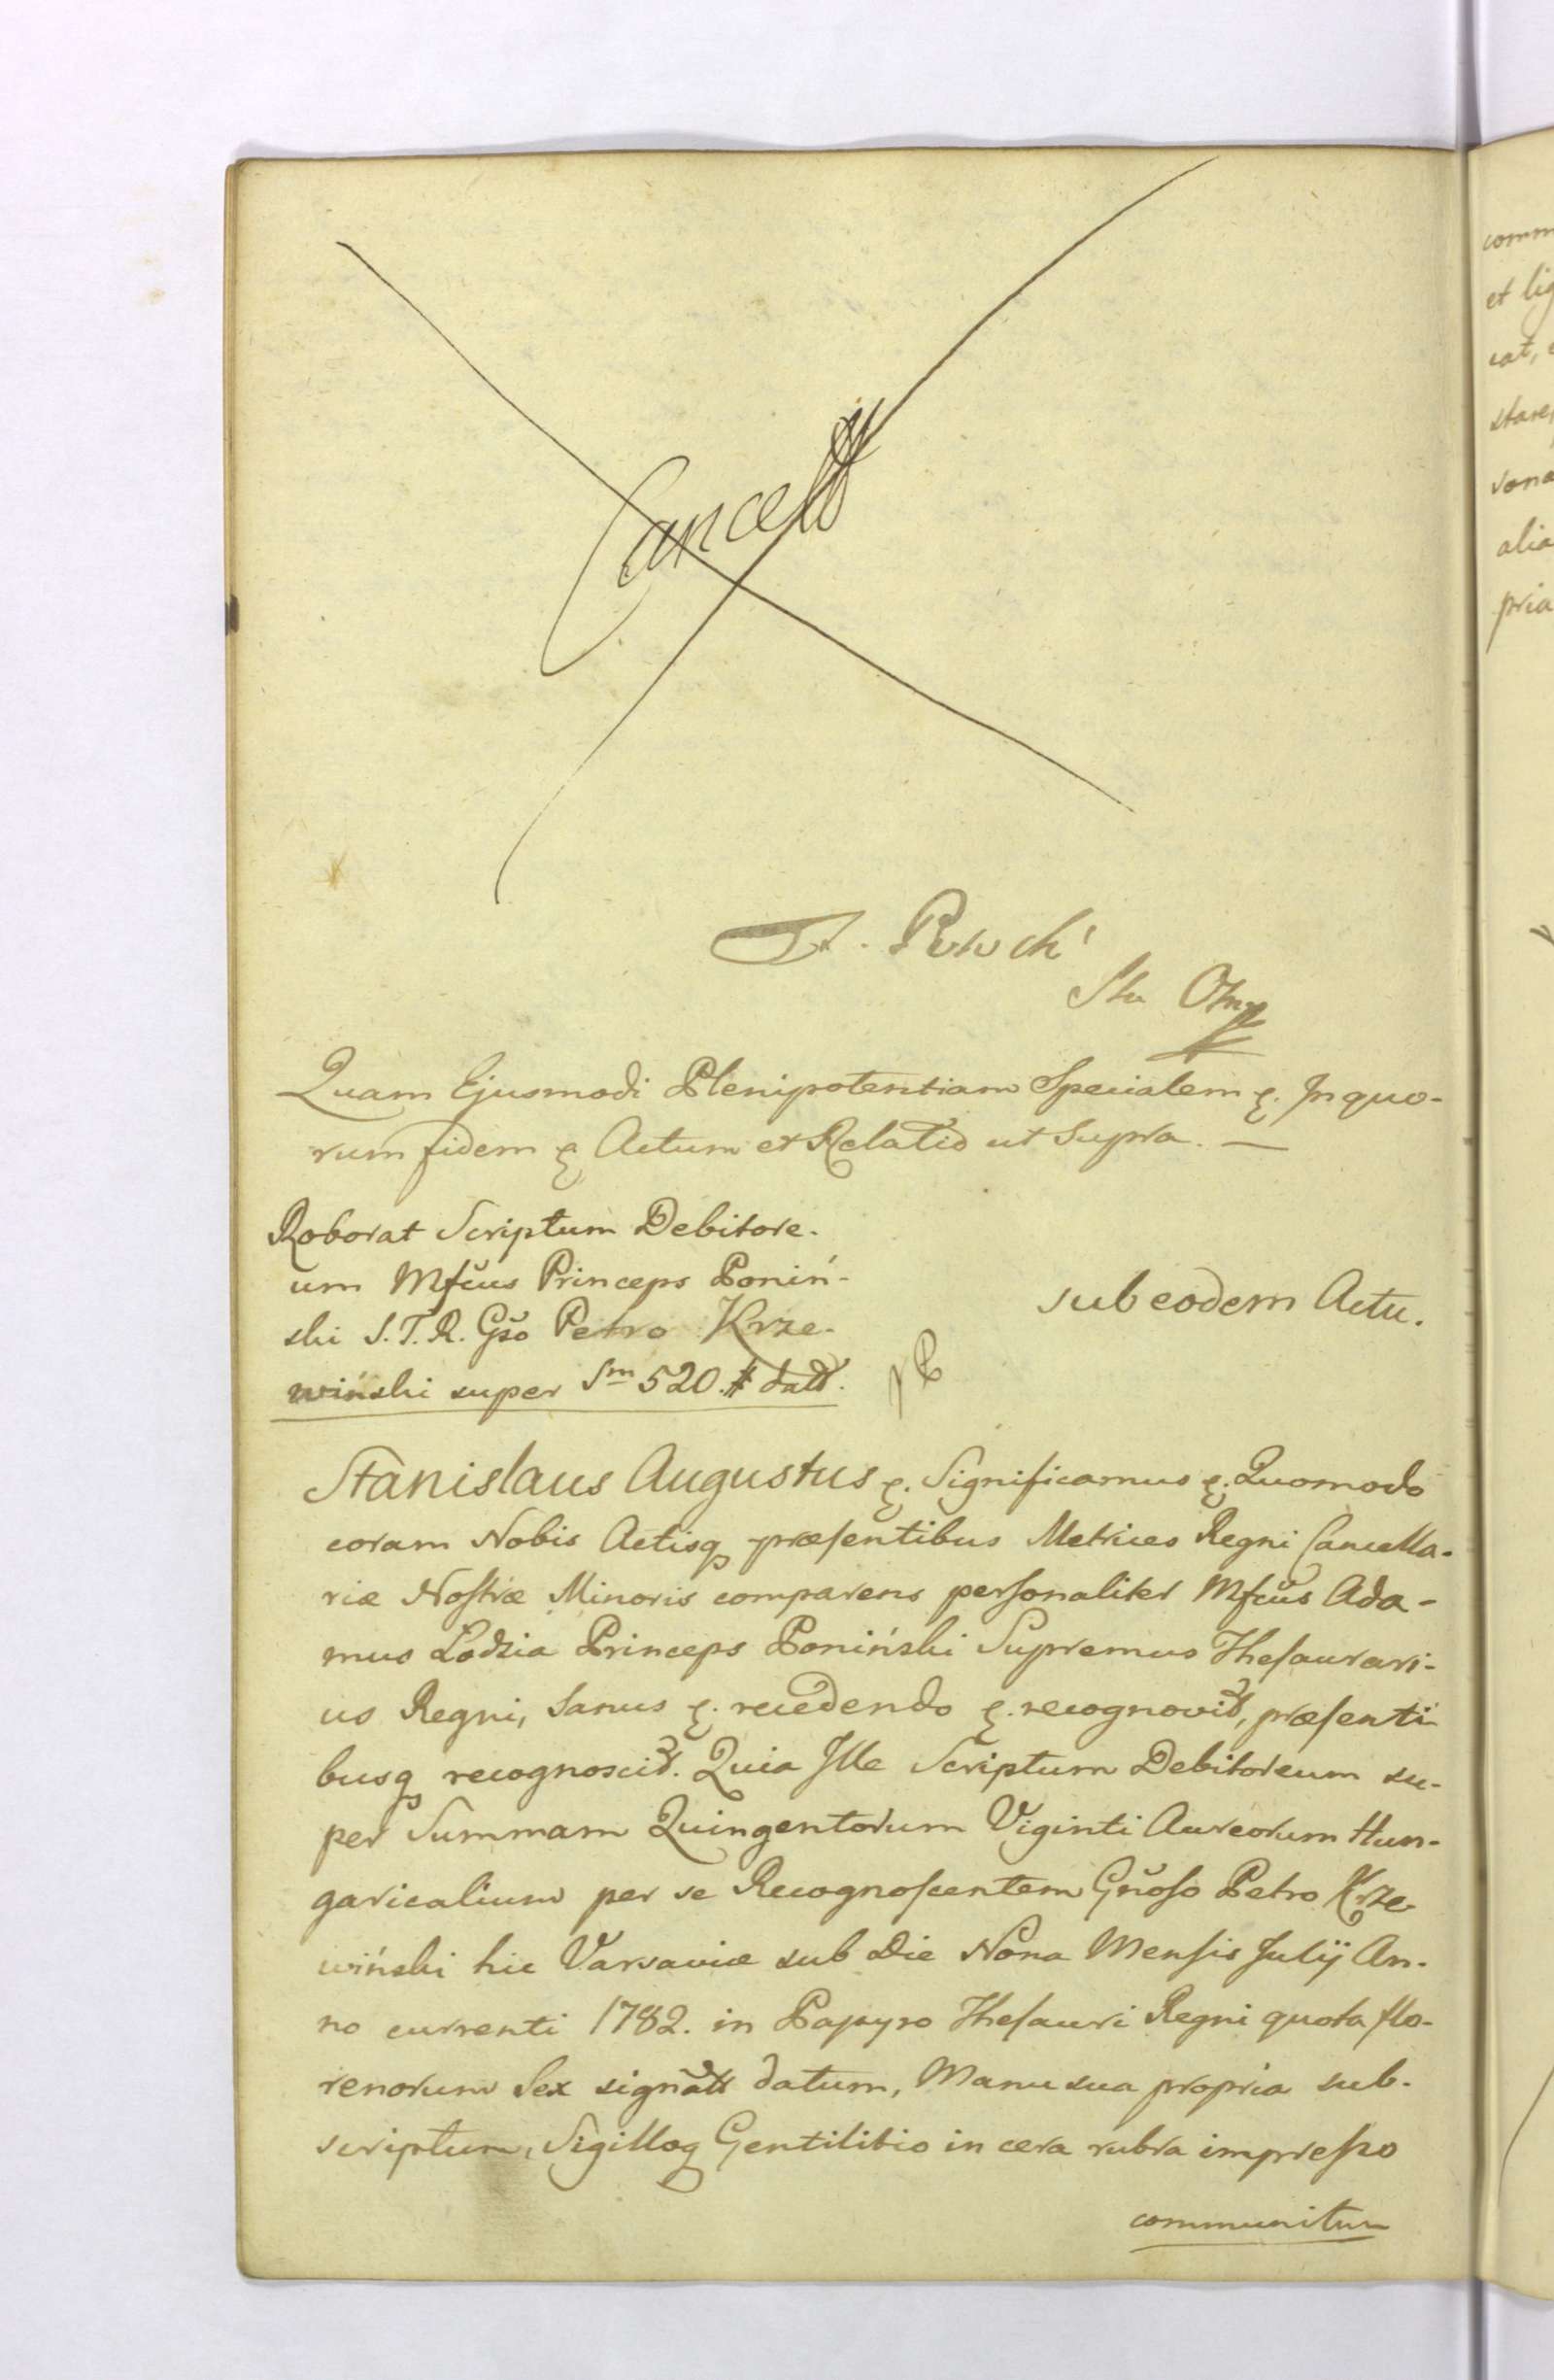 Cancelltt
Quam Ejusmodi Plenipotentiam Specialem &. In quo-
rum fidem & Actum et Relatio ut Supra. —
Roborat Scriptum Debitore-
um Mfcus Princeps Poniń-
ski S.T.R. Gso Petro Krze-
wiński super Sm 520. # datt.
sub eodem Actu.
Stanislaus Augustus &. Significamus &. Quomodo
coram Nobis Actisq præsentibus Metrices Regni Cancella-
riæ Nostræ Minoris comparens personaliter Mfcus Ada-
mus Lodzia Princeps Poniński Supremus Thesaurari-
us Regni, Sanus &. recedendo &. recognovit, præsenti-
busq recognoscit. Quia Ille Scriptum Debitoreum su-
per Summam Quingentorum Viginti Aureorum Hun-
garicalium per se Recognoscentem Gnoso Petro Krze-
wiński hic Varsaviæ sub Die Nona Mensis Julÿ An-
no currenti 1782. in Papyro Thesauri Regni quota flo-
renorum Sex signatt datum, Manu sua propria sub-
scriptum, Sigilloq Gentilitio in cera rubra impresso
communitum
comm
et lig
cat,
stare,
sona
alia
pria